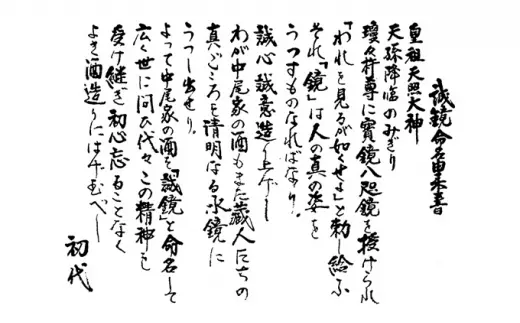 誠鏡命名由来書
皇祖天照大神
天孫降臨のみぎり
瓊々杵尊に寳鏡八咫鏡を授けられ
「われを見るが如くせよ」と勅し給ふ
それ「鏡」は人の真の姿を
うつすものなればなり。
誠心誠意造り上げし
わが中尾家の酒もまた蔵人たちの
真ごころを清明なる水鏡に
うつし出せり。
よって中尾家の酒を「誠鏡」と命名して
広く世に問ひ代々この精神を
受け継ぎ初心忘るることなく
よき酒造りにはげむべし
初代